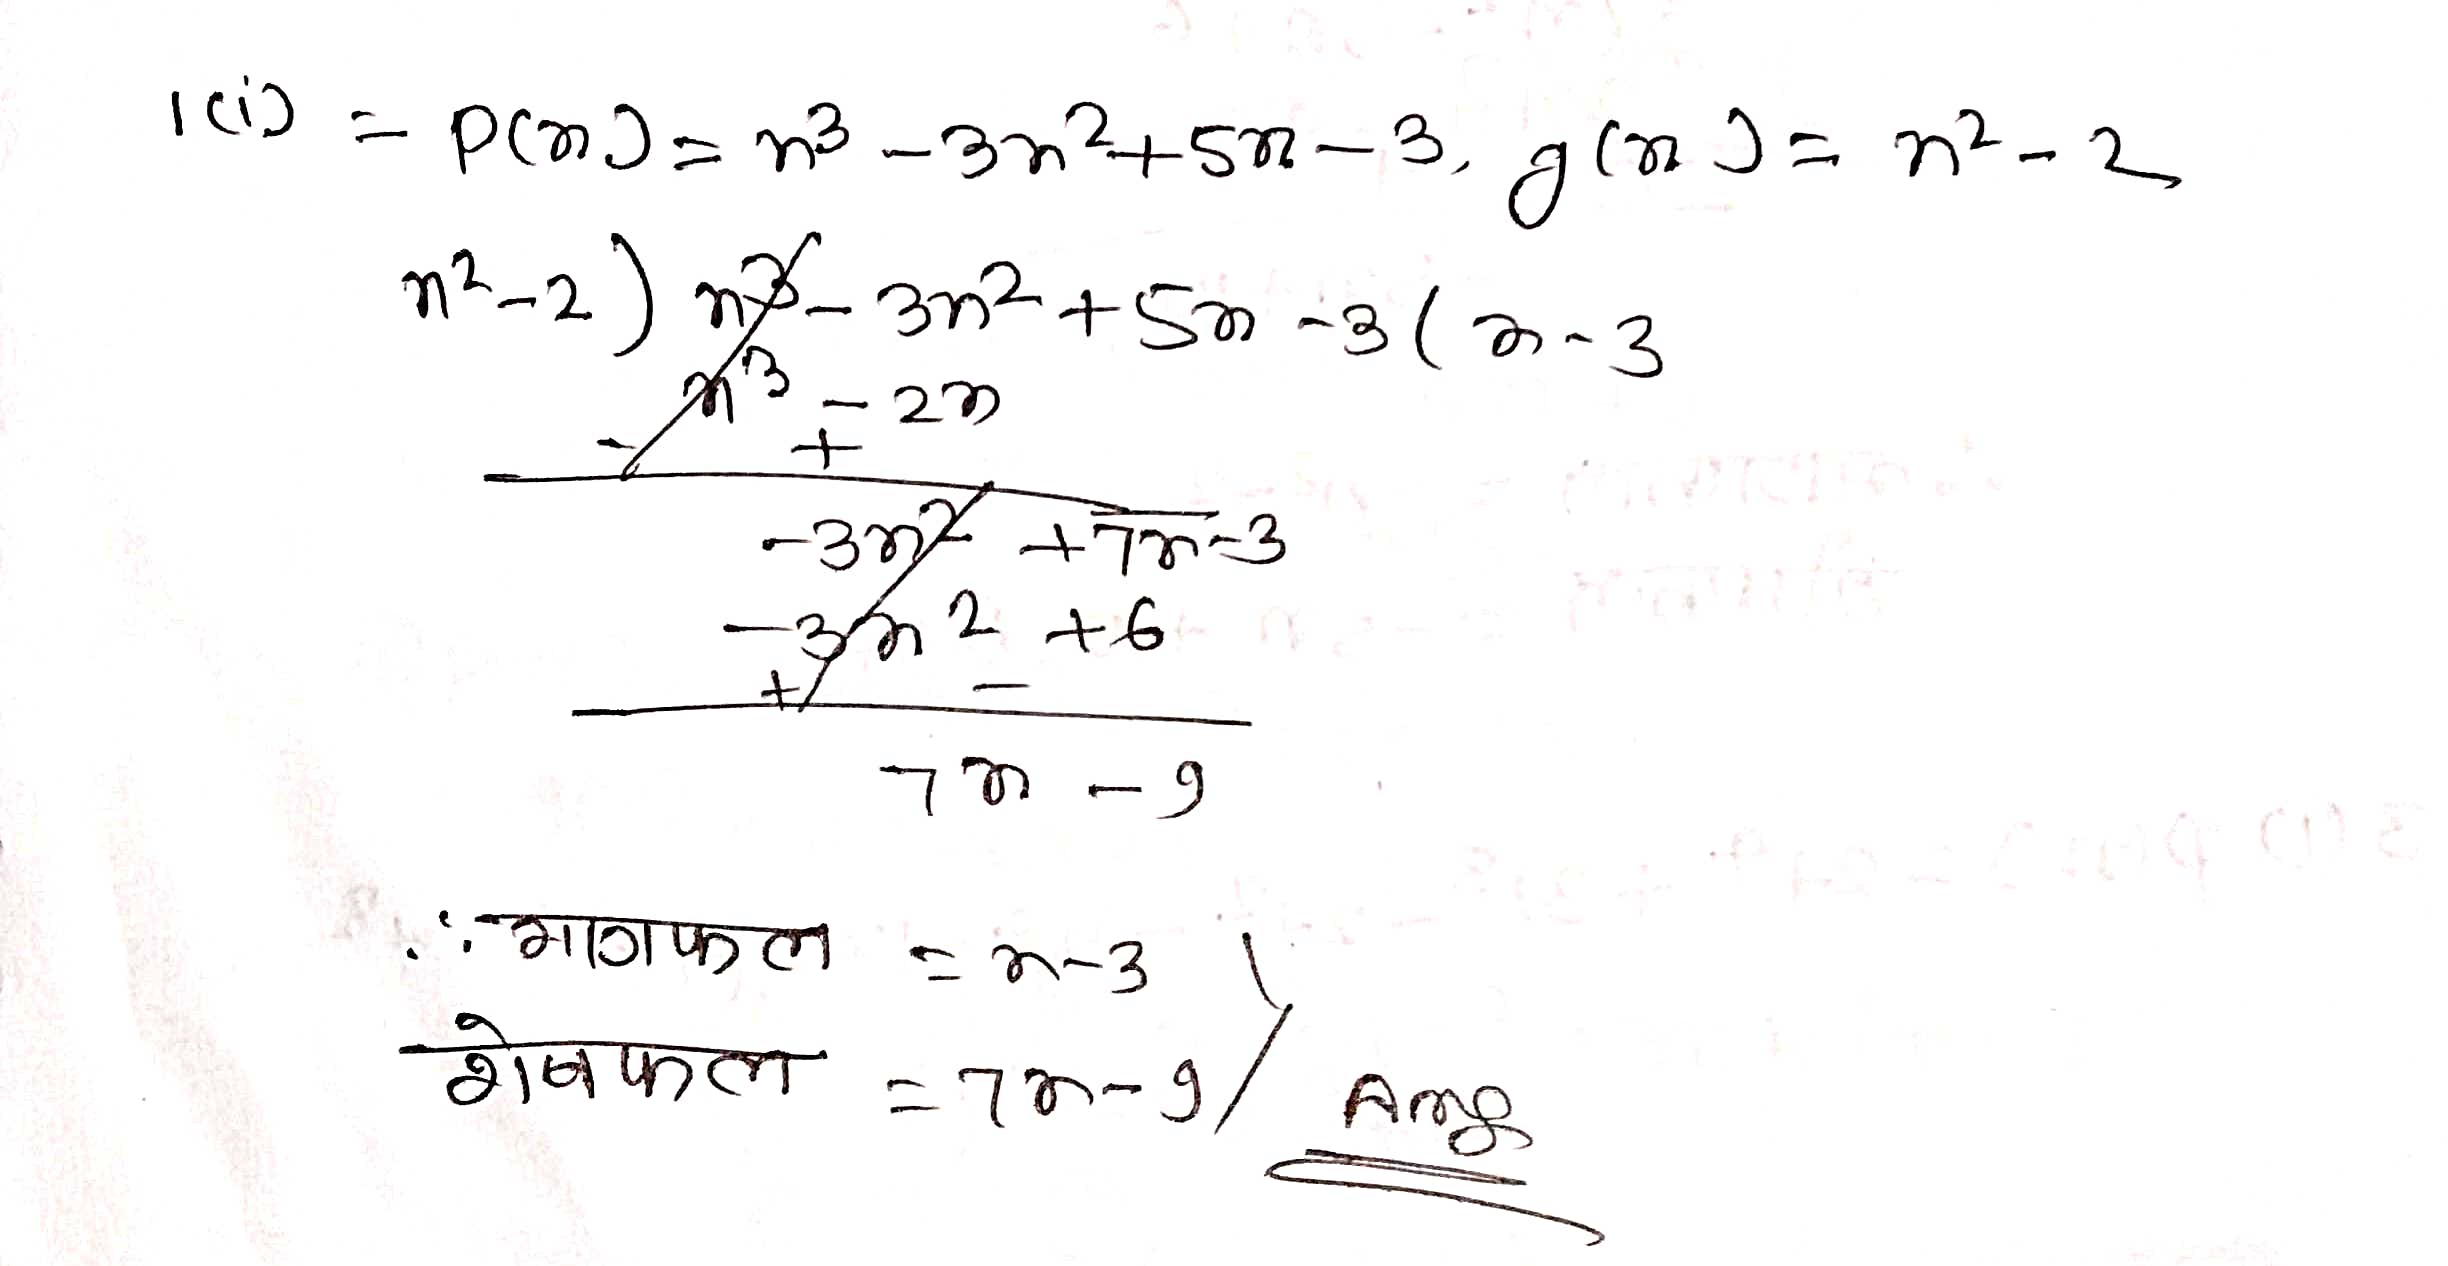 1(i) = P(x) = x³ - 3x² + 5x - 3, g(x) = x² - 2
x² - 2 ) x³ - 3x² + 5x - 3 ( x - 3
x³ - 2x
- +
-3x² + 7x - 3
-3x² + 6
+ -
7x - 9
∴ भागफल = x - 3
शेषफल = 7x - 9 Ans